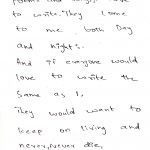 to write. They come
to me both Day
and nights.
And if everyone would
love to write the
Same as I,
They would want to
keep on living and
never, never die,